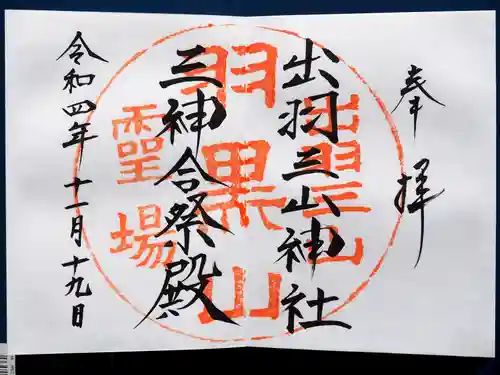 奉拝
出羽三山神社
三神合祭殿
令和四年 十一月十九日
出羽三山
羽黒山
霊場